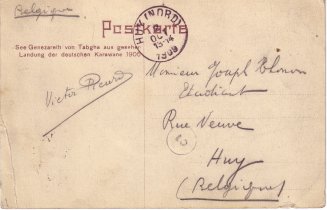 Belgique
Postkarte
See Genezareth von Tabgha aus gesehen
Landung der deutschen Karawane 1906
HUY (NORD)
13-14
Victor
Monsieur Joseph
Etudiant
Rue Neuve
Huy
(Belgique)